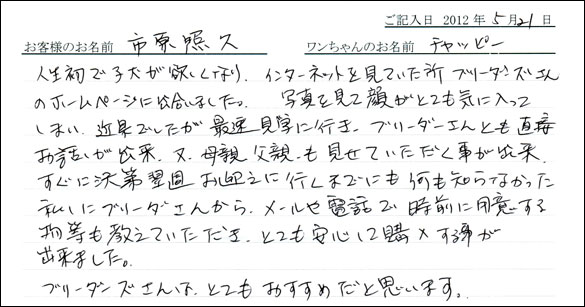 ご記入日 2012年 5月21日
お客様のお名前 市原照久 ワンちゃんのお名前 チャッピー
人生初で子犬が欲しくなり、インターネットを見ていた所 ブリーダーズさん
のホームページに出合いました。 写真を見て顔がとても気に入って
しまい、近県でしたが 最速見学に行き、ブリーダーさんとも直接
お話しが出来、又、母親 父親も見せていただく事が出来、
すぐに決め翌週 お迎えに行くまでにも 何も知らなかった
私にブリーダーさんから、メールや電話で 時前に用意する
物等も教えていただき、とても安心して購入する事が
出来ました。
ブリーダーズさんは、とてもおすすめだと思います。